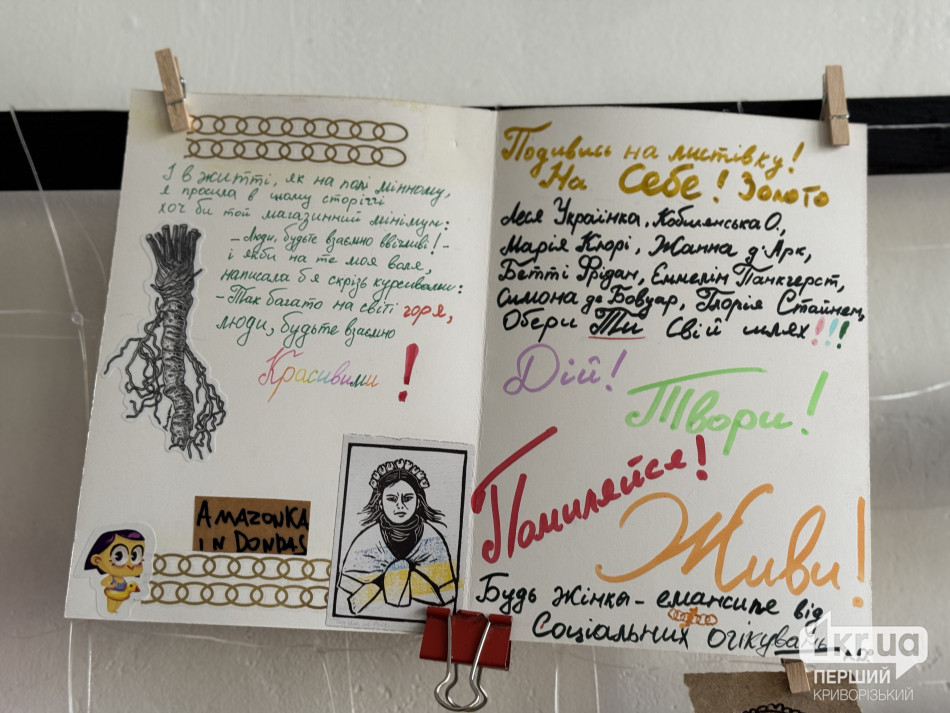 І в житті, як на полі мінному,
я просила в цьому сторіччі
хоч би той магазинний мінімум:
– Люди, будьте взаємно ввічливі! –
і якби на те моя воля,
написала б я скрізь курсивами:
– Так багато на світі горя,
люди, будьте взаємно
Красивими!
AMAZONKA
IN DONBAS
Подивись на листівку!
На Себе! Золото
Леся Українка, Кобилянська О.,
Марія Кюрі, Жанна д'Арк,
Бетті Фрідан, Еммелін Панкгерст,
Симона де Бовуар, Глорія Стайнем,
Обери Ти Свій шлях!!!
Дій!
Твори!
Помиляйся!
Живи!
Будь Жінко - емансипе від
Соціальних очікувань
1kr.ua
ПЕРШИЙ
КРИВОРІЗЬКИЙ